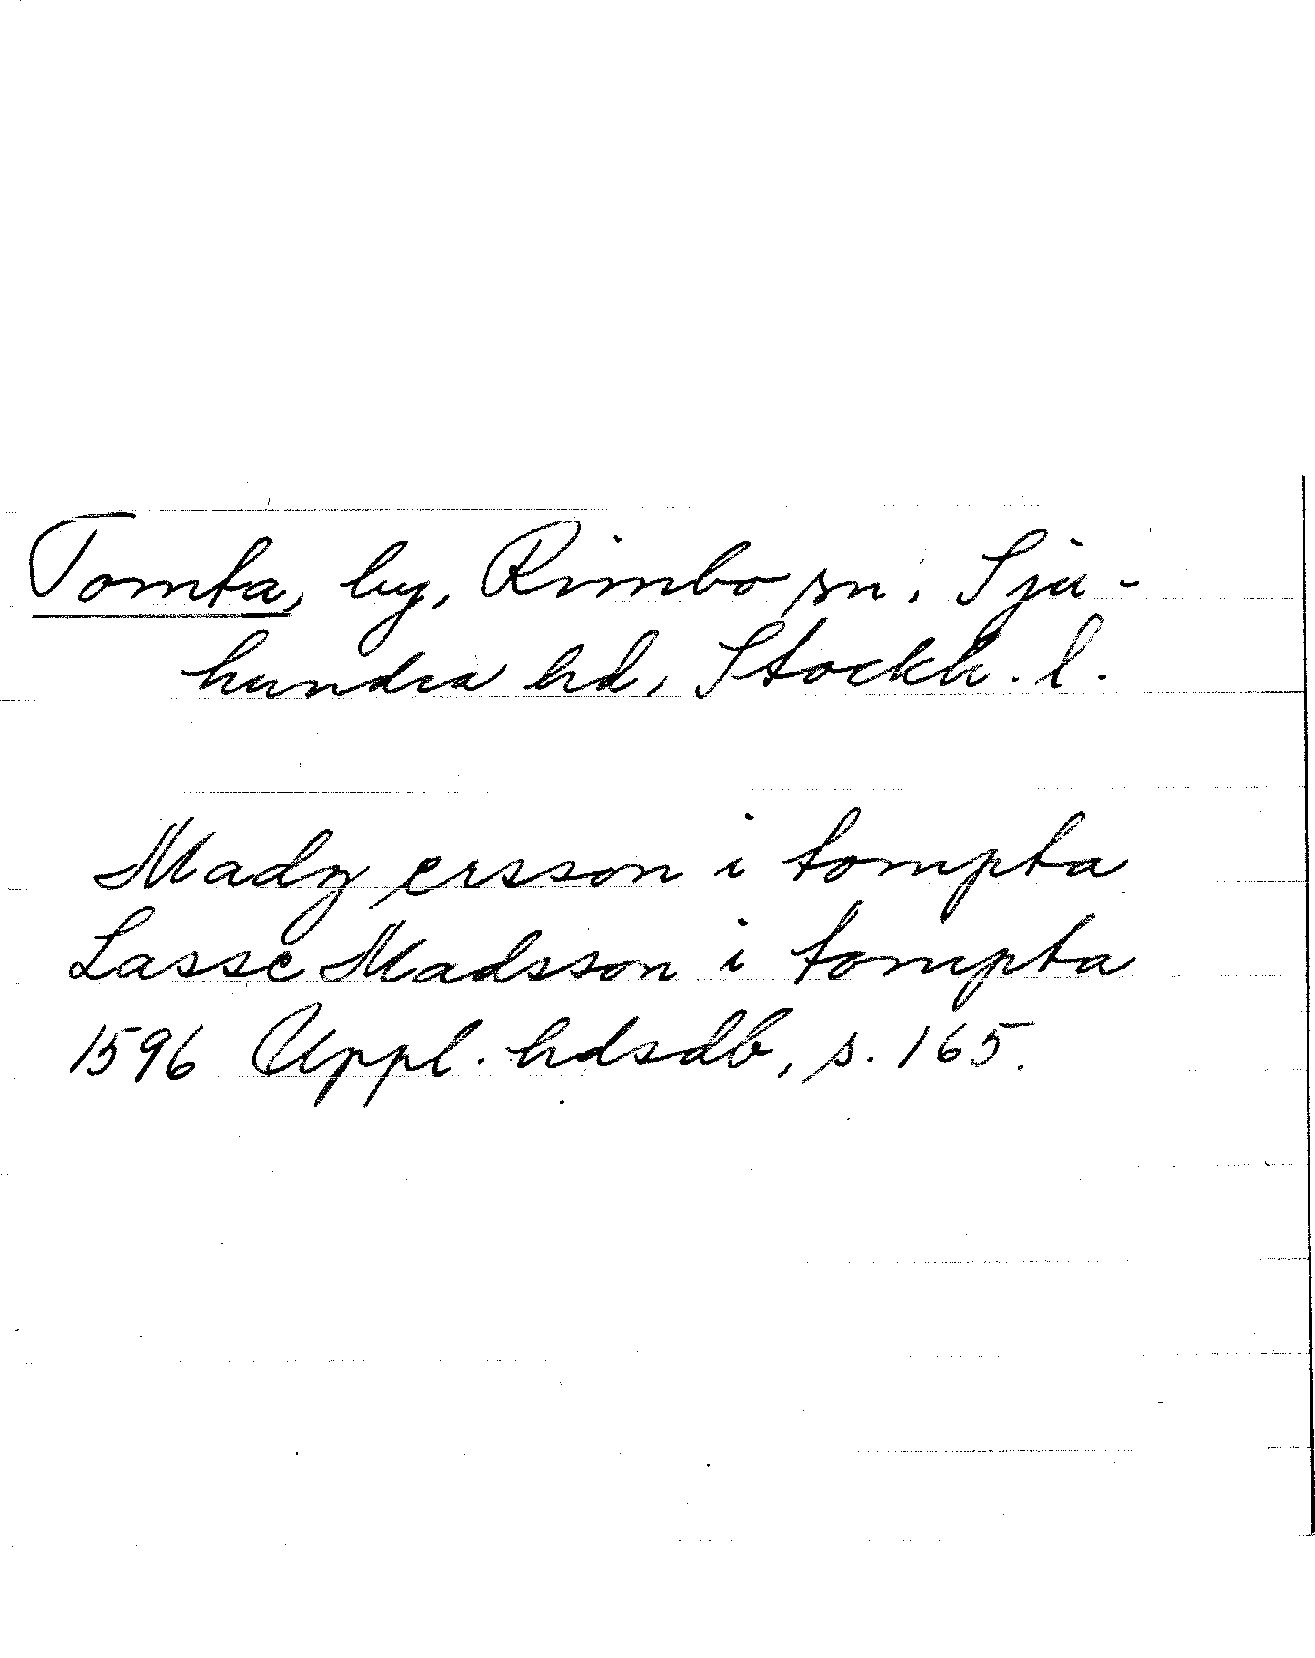 Tomta, by, Rimbo sn, Sju-
hundra hd, Stockh. l.
Madz ersson i tompta
Lasse Madsson i tompta
1596 Uppl. hdsdb, s. 165.